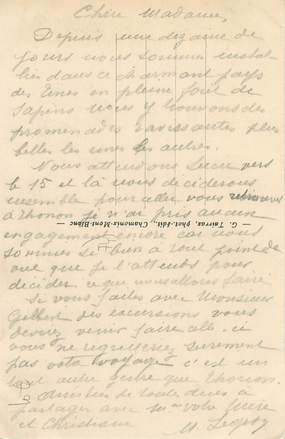 Chère Madame,
Depuis une dizaine de
jours nous sommes instal-
lés dans ce charmant pays
des Tines en pleine forêt de
sapins nous y trouvons des
promenades ravissantes plus
belles les unes que les autres.
Nous attendons Lucie vers
le 15 et là nous déciderons
ensemble pour aller vous retrouver
à Thonon je n'ai pris aucun
engagement encore car nous
— G. Tairraz, phot.-édit., Chamonix-Mont-Blanc —
sommes si bien à tout point de
vue que je l'attends pour
décider ce que nous allons faire
Si vous faites avec Monsieur
Gilbert des excursions vous
devriez venir faire celle-ci
vous ne regretterez sûrement
pas votre voyage c'est un
tout autre genre que Thonon.
de toutes à
partager avec votre
et Christiane